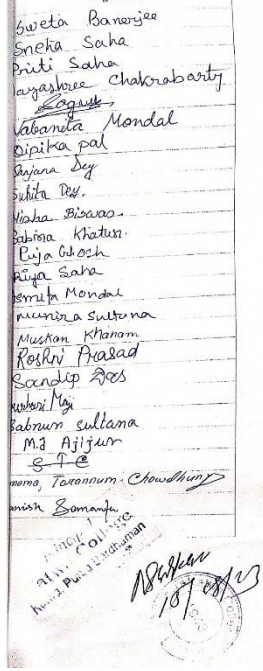 Sweta Banerjee
Sneha Saha
Priti Saha
Jayashree Chakrabarty
Nabanita Mondal
Dipika pal
Sanjana Dey
Sukita Dey.
Nisha Biswas.
Sabina Khatun.
Puja Ghosh
Priya Saha
Asmita Mondal
Munira Sultana
Muskan Khanam
Roshni Prasad
Sandip Das
Maji
Sabnun Sultana
M.d Ajijur
S T C
Tarannum Chowdhury
Samanta
College
Purba Bardhaman
18/08/23